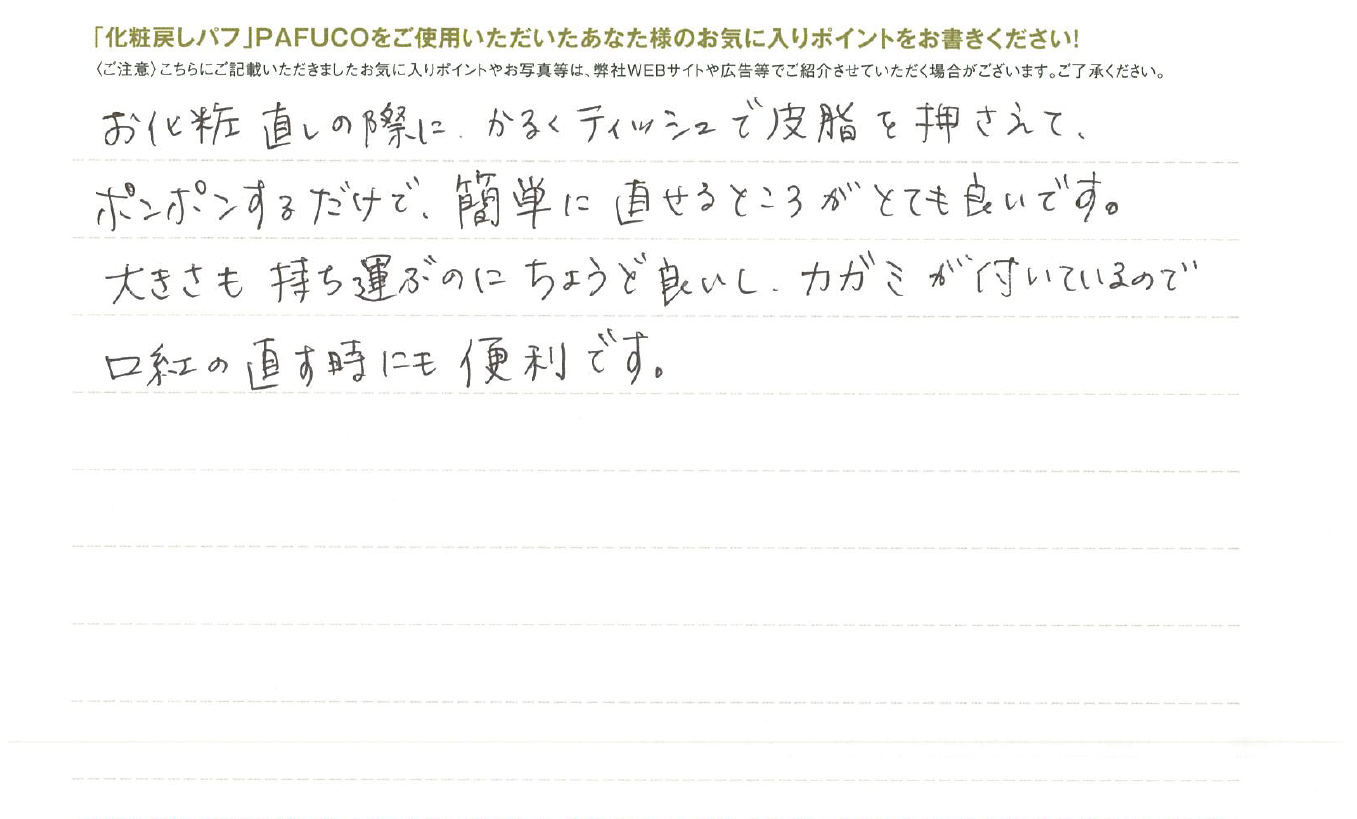 「化粧戻しパフ」PAFUCOをご使用いただいたあなた様のお気に入りポイントをお書きください!
〈ご注意〉こちらにご記載いただきましたお気に入りポイントやお写真等は、弊社WEBサイトや広告等でご紹介させていただく場合がございます。ご了承ください。
お化粧直しの際に、かるくティッシュで皮脂を押さえて、
ポンポンするだけで、簡単に直せるところがとても良いです。
大きさも持ち運ぶのにちょうど良いし、カガミが付いているので
口紅の直す時にも便利です。